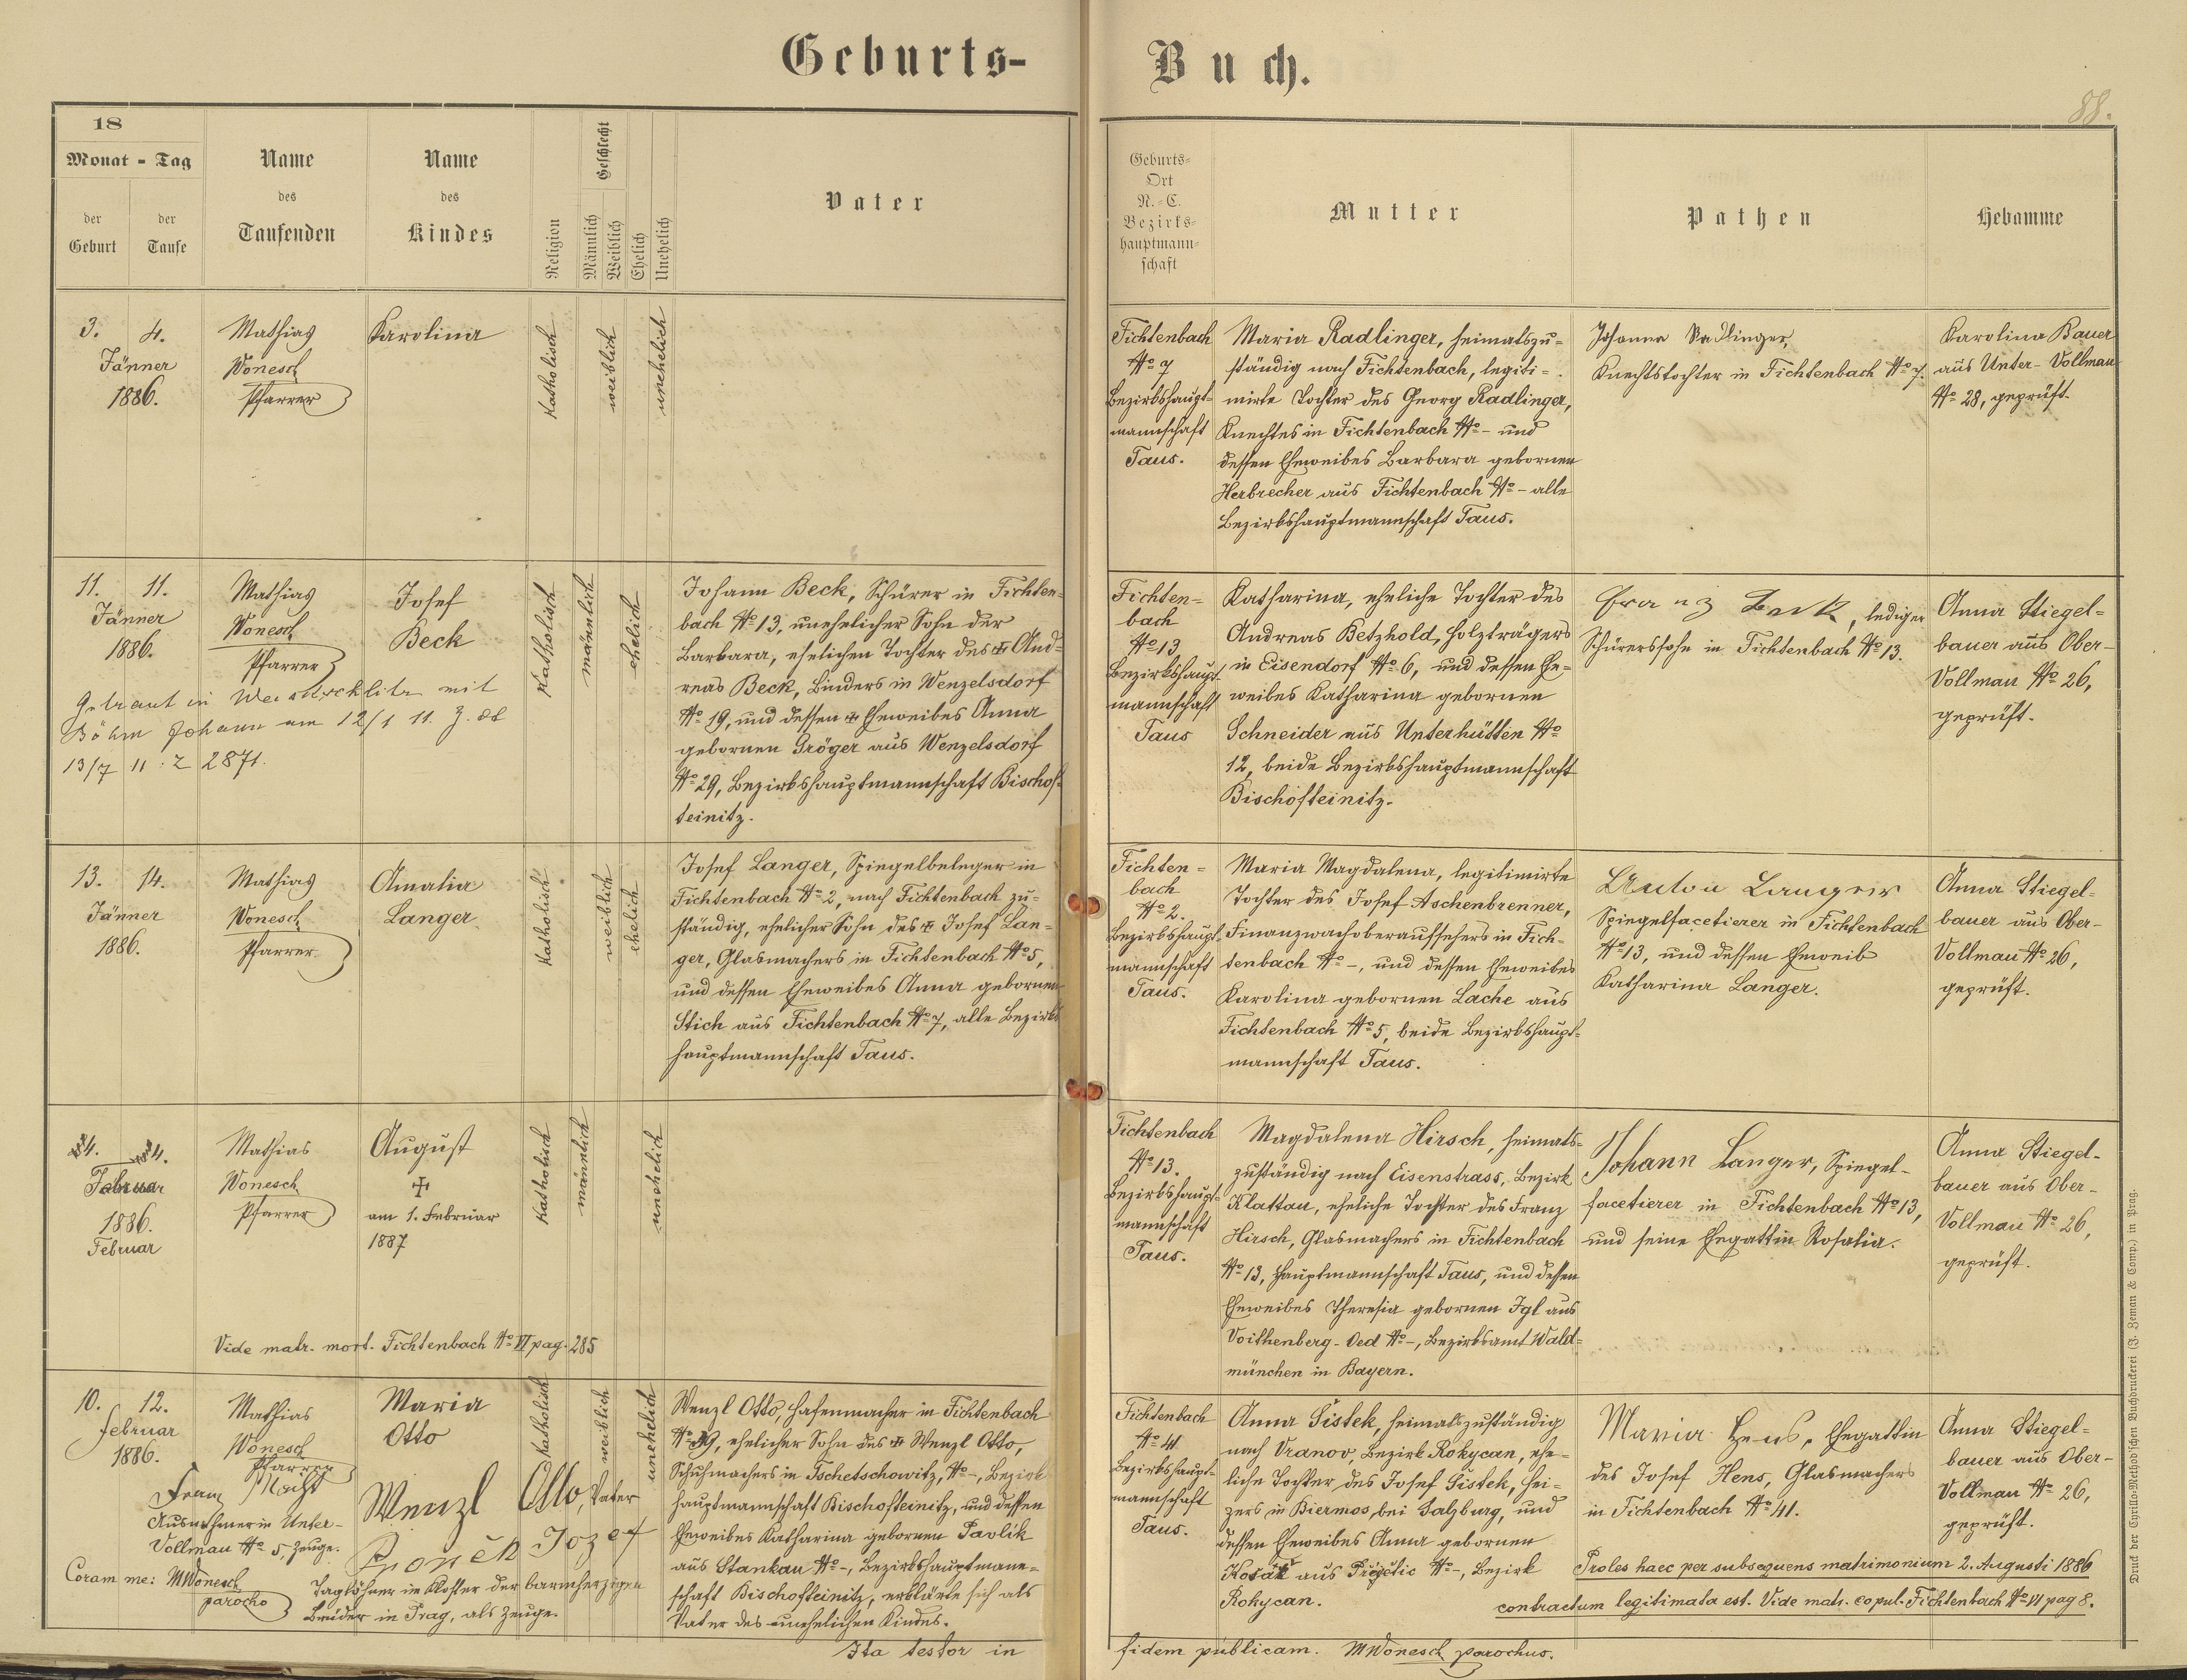 Geburts-
Buch.
88.
18
Monat - Tag
der Geburt
der Taufe
Name des Taufenden
Name des Kindes
Religion
Geschlecht
Männlich
Weiblich
Ehelich
Unehelich
Vater
Geburts=
Ort
N.-C.
Bezirks=
hauptmann=
schaft
Mutter
Pathen
Hebamme
3. 4.
Jänner
1886.
Mathias
Wonesch
Pfarrer
Karolina
Katholisch
weiblich
unehelich
Fichtenbach
No 7
Bezirkshaupt-
mannschaft
Taus.
Maria Radlinger, heimatszu=
ständig nach Fichtenbach, legiti=
mirte Tochter des Georg Radlinger,
Knechtes in Fichtenbach No - und
dessen Eheweibes Barbara gebornen
Herbrecher aus Fichtenbach No - alle
Bezirkshauptmannschaft Taus.
Johanna Radlinger,
Knechtstochter in Fichtenbach No 7.
Karolina Bauer
aus Unter-Vollmau
No 28, geprüft.
11. 11.
Jänner
1886.
Mathias
Wonesch
Pfarrer
Josef
Beck
Katholisch
männlich
ehelich
Getraut in mit
Böhm Johann am 12/1 11. Z.
13/7 11. Z 2871.
Johann Beck, Schürer in Fichten-
bach No 13, unehelicher Sohn der
Barbara, ehelichen Tochter des ✠ And=
reas Beck, Binders in Wenzelsdorf
No 19, und dessen ✠ Eheweibes Anna
gebornen Gröger aus Wenzelsdorf
No 29, Bezirkshauptmannschaft Bischof-
teinitz.
Fichten=
bach
No 13
Bezirkshaupt
mannschaft
Taus
Katharina, eheliche Tochter des
Andreas Betzhold, Holzträgers
in Eisendorf No 6, und dessen Ehe-
weibes Katharina gebornen
Schneider aus Unterhütten No
12, beide Bezirkshauptmannschaft
Bischofteinitz.
Franz Beck, lediger
Schürerssohn in Fichtenbach No 13.
Anna Stiegel=
bauer aus Ober-
Vollmau No 26,
geprüft.
13. 14.
Jänner
1886.
Mathias
Wonesch
Pfarrer
Amalia
Langer
Katholisch
weiblich
ehelich
Josef Langer, Spiegelbeleger in
Fichtenbach No 2, nach Fichtenbach zu-
ständig, ehelicher Sohn des ✠ Josef Lan=
ger, Glasmachers in Fichtenbach No 5,
und dessen Eheweibes Anna gebornen
Stich aus Fichtenbach No 7, alle Bezirks
hauptmannschaft Taus.
Fichten=
bach
No 2.
Bezirkshaupt
mannschaft
Taus.
Maria Magdalena, legitimirte
Tochter des Josef Aschenbrenner,
Finanzwachoberaufsehers in Fich-
tenbach No -, und dessen Eheweibes
Karolina gebornen Lache aus
Fichtenbach No 5, beide Bezirkshaupt=
mannschaft Taus.
Anton Langer
Spiegelfacetierer in Fichtenbach
No 13, und dessen Eheweib
Katharina Langer.
Anna Stiegel=
bauer aus Ober-
Vollmau No 26,
geprüft.
4. 4.
Februar
1886.
Februar
Mathias
Wonesch
Pfarrer
August
✠
am 1. Februar
1887
Katholisch
männlich
unehelich
Vide matr. mort. Fichtenbach No VI pag. 285
Fichtenbach
No 13.
Bezirkshaupt=
mannschaft
Taus.
Magdalena Hirsch, heimats=
zuständig nach Eisenstrass, Bezirk
Klattau, eheliche Tochter des Franz
Hirsch, Glasmachers in Fichtenbach
No 13, Hauptmannschaft Taus, und dessen
Eheweibes Theresia gebornen Igl aus
Voithenberg-Oed No -, Bezirksamt Wald=
münchen in Bayern.
Johann Langer, Spiegel-
facetierer in Fichtenbach No 13,
und seine Ehegattin Rosalia.
Anna Stiegel-
bauer aus Ober-
Vollmau No 26,
geprüft.
10. 12.
Februar
1886.
Mathias
Wonesch
Pfarrer
Maria
Otto
katholisch
weiblich
unehelich
Franz Macht
Ausnehmer in Unter-
Vollmau No 5, Zeuge.
Coram me: MWonesch
parocho
Wenzl Otto, Vater
Jozef
Taglöhner im Kloster der barmherzigen
Brüder in Prag, als Zeuge.
Wenzl Otto, Hafenmacher in Fichtenbach
No 39, ehelicher Sohn des ✠ Wenzl Otto,
Schuhmachers in Tschetschowitz, No -, Bezirk
hauptmannschaft Bischofteinitz, und dessen
Eheweibes Katharina gebornen Pavlik
aus Stankau No -, Bezirkshauptmann=
schaft Bischofteinitz, erklärte sich als
Vater des unehelichen Kindes.
Ita testor in
Fichtenbach
No 41
Bezirkshaupt=
mannschaft
Taus.
Anna Šistek, heimatszuständig
nach Vranov, Bezirk Rokycan, ehe-
liche Tochter des Josef Šistek, Hei=
zers in Biermos bei Salzburg, und
dessen Eheweibes Anna gebornen
aus No -, Bezirk
Rokycan.
Maria Hens, Ehegattin
des Josef Hens, Glasmachers
in Fichtenbach No 41.
Anna Stiegel-
bauer aus Ober-
Vollmau No 26,
geprüft.
Proles haec per subsequens matrimonium 2. Augusti 1886
contractum legitimata est. Vide matr. copul. Fichtenbach No VI pag 8.
fidem publicam. MWonesch parochus.
Druck der Cyrillo-Method'schen Buchdruckerei (J. Zeman & Comp.) in Prag.